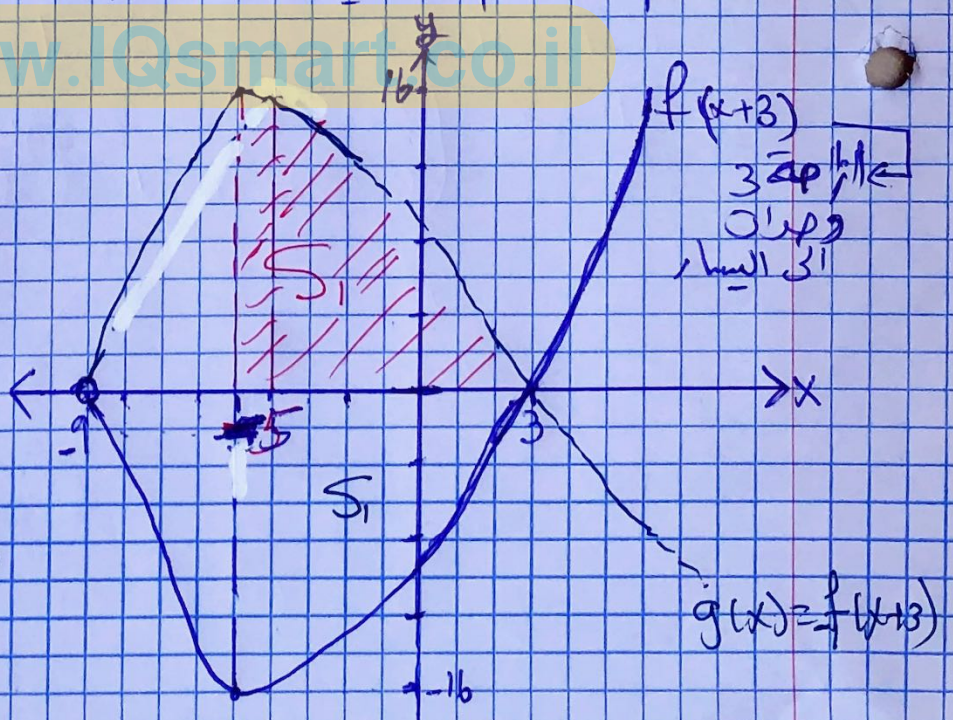 w.IQsmart.co.il
y
16
f(x+3)
إزاحة 3
إلى اليسار
S₁
x
-9
-5
3
S₁
g(x)=-f(x+3)
-16